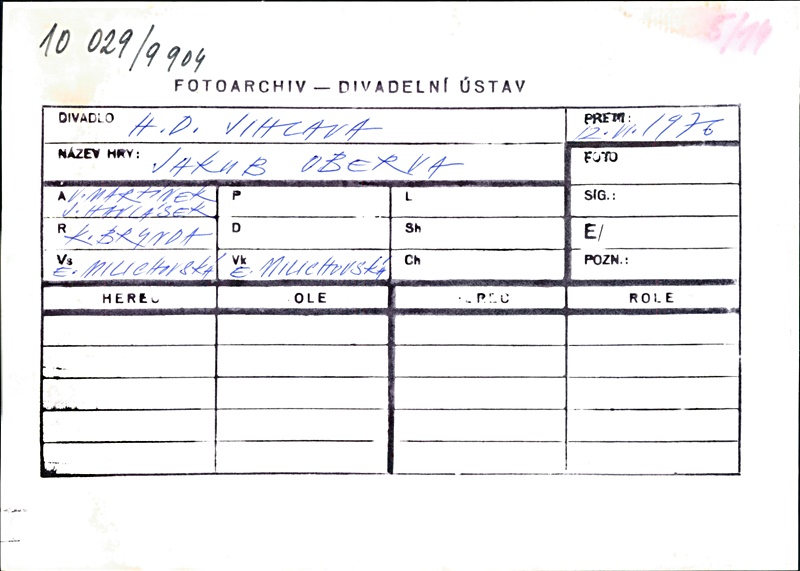 10 029/9904
5/14
FOTOARCHIV — DIVADELNÍ ÚSTAV
DIVADLO H.D. JIHLAVA
PREM: 12.VI.1976
NÁZEV HRY: JAKUB OBERVA
FOTO
A V. MARTINEK
J. HAVLÁSEK
P
L
SIG.:
R K. BRYNDA
D
Sh
E/
Vs E. MILICHOVSKÁ
Vk E. MILICHOVSKÁ
Ch
POZN.:
HEREC
OLE
EREC
ROLE